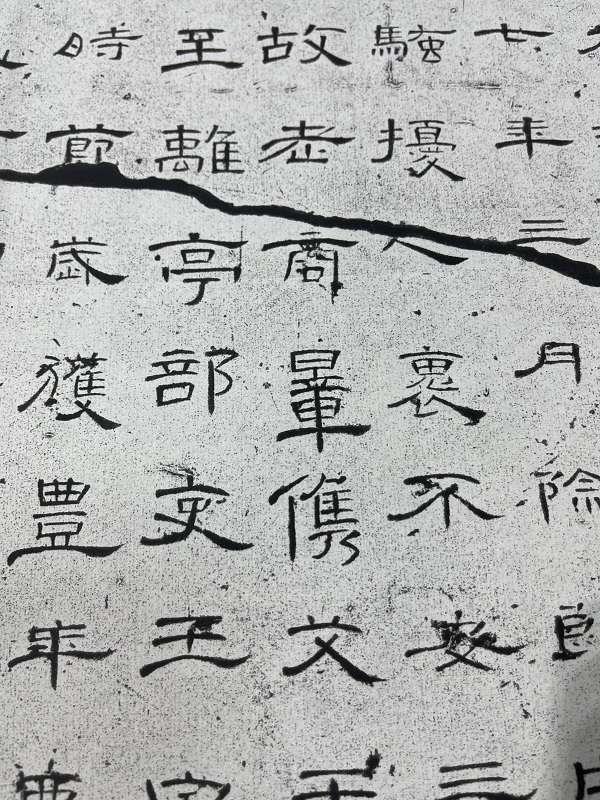 七年三月除郎
騷擾人裹不安三
故老商量儁艾王
至離亭部吏王
時節歲獲豐年